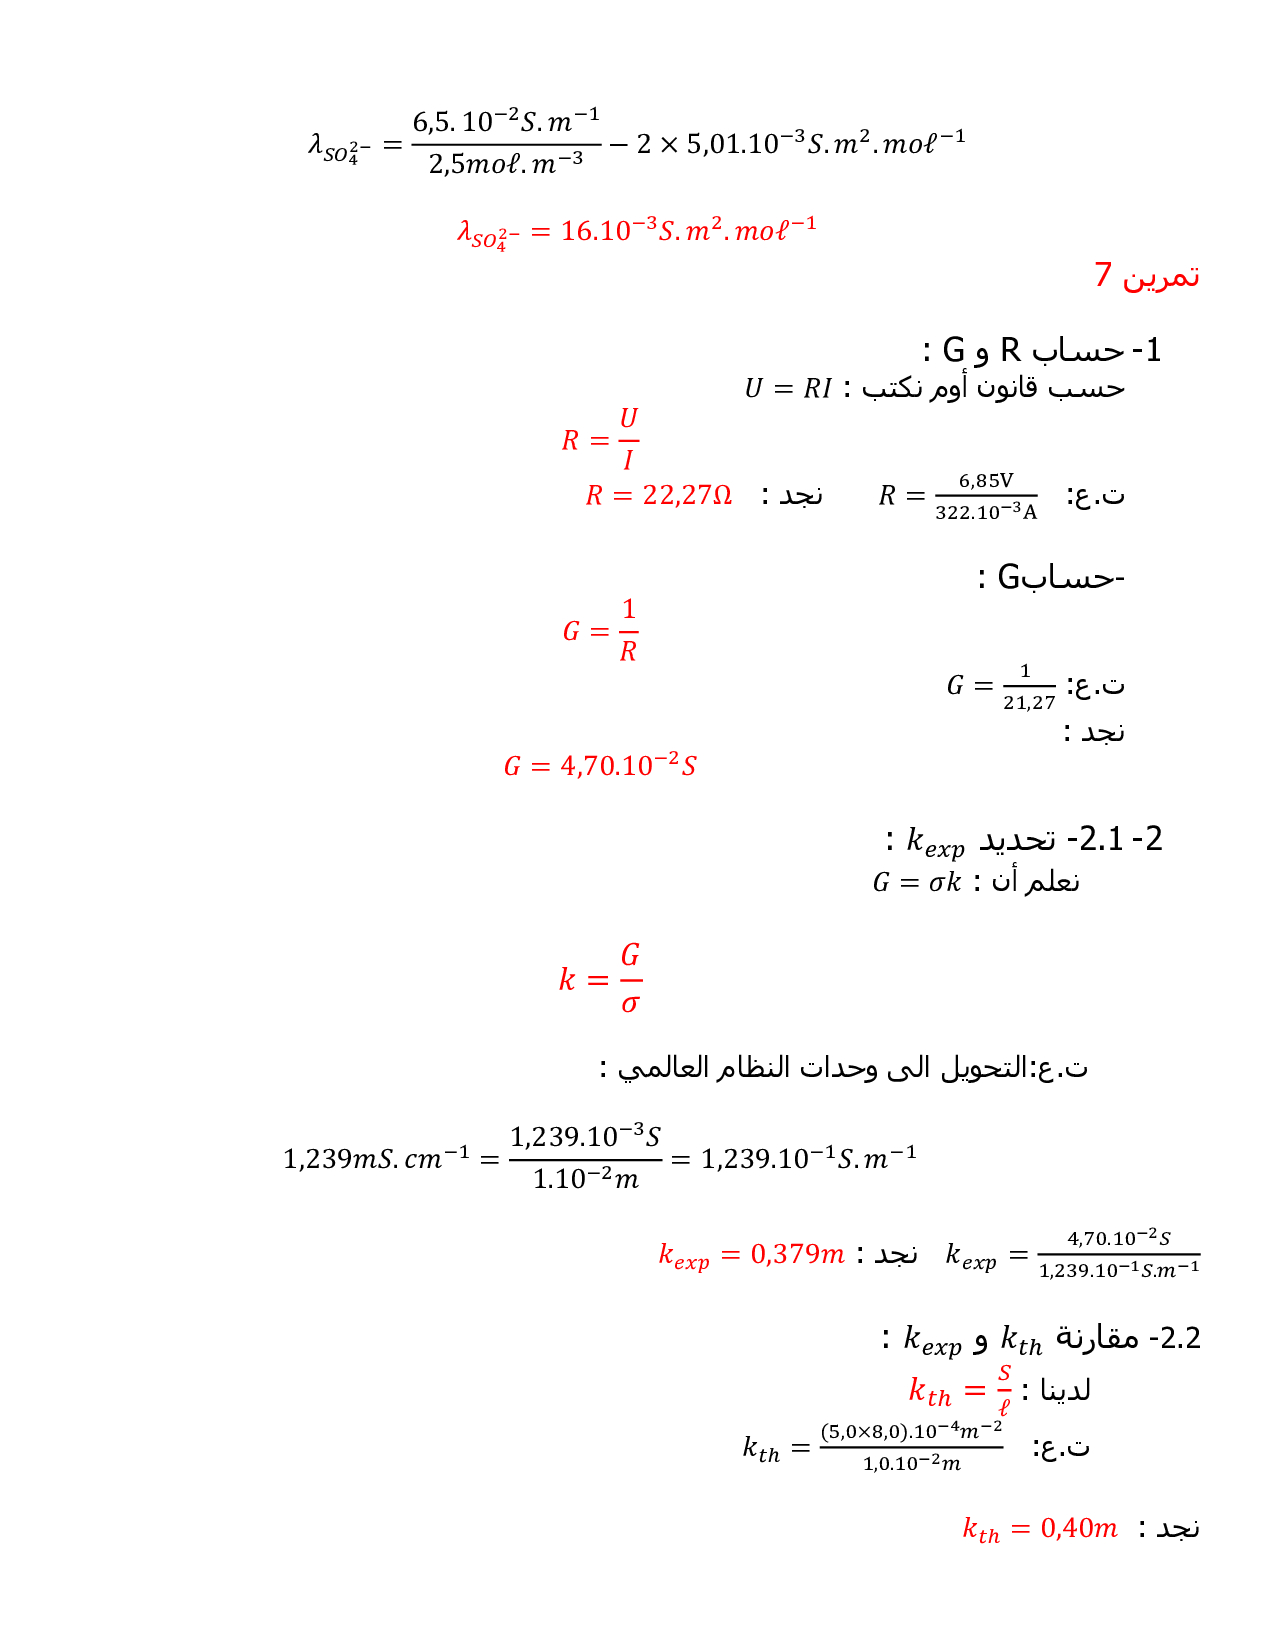 λ_{SO_4^{2−}} = \frac{6,5. 10^{−2}S. m^{−1}}{2,5moℓ. m^{−3}} − 2 × 5,01.10^{−3}S. m^2. moℓ^{−1}
λ_{SO_4^{2−}} = 16.10^{−3}S. m^2. moℓ^{−1}
تمرين 7
1- حساب R و G :
حسب قانون أوم نكتب : U = RI
R = \frac{U}{I}
ت.ع: R = \frac{6,85V}{322.10^{−3}A} نجد : R = 22,27Ω
-حسابG :
G = \frac{1}{R}
ت.ع: G = \frac{1}{21,27}
نجد :
G = 4,70.10^{−2}S
2- 2.1- تحديد k_{exp} :
نعلم أن : G = σk
k = \frac{G}{σ}
ت.ع:التحويل الى وحدات النظام العالمي :
1,239mS. cm^{−1} = \frac{1,239.10^{−3}S}{1.10^{−2}m} = 1,239.10^{−1}S. m^{−1}
k_{exp} = \frac{4,70.10^{−2}S}{1,239.10^{−1}S.m^{−1}} نجد : k_{exp} = 0,379m
2.2- مقارنة k_{th} و k_{exp} :
لدينا : k_{th} = \frac{S}{ℓ}
ت.ع: k_{th} = \frac{(5,0×8,0).10^{−4}m^{−2}}{1,0.10^{−2}m}
نجد : k_{th} = 0,40m